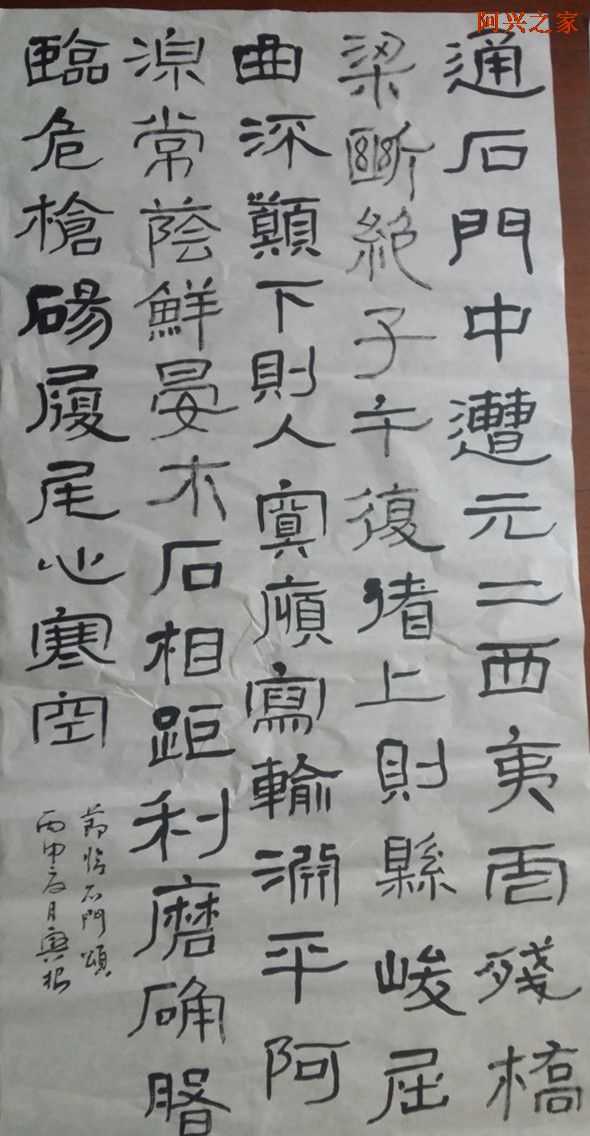 阿兴之家
通石門中遭元二西夷虐殘橋
梁斷絶子午復循上則縣峻屈
曲深顛下則人寞廎寫輸淵平阿
湶常蔭鮮晏木石相距利磨确
臨危槍碭履尾心寒空
節臨石門頌
丙申月興根